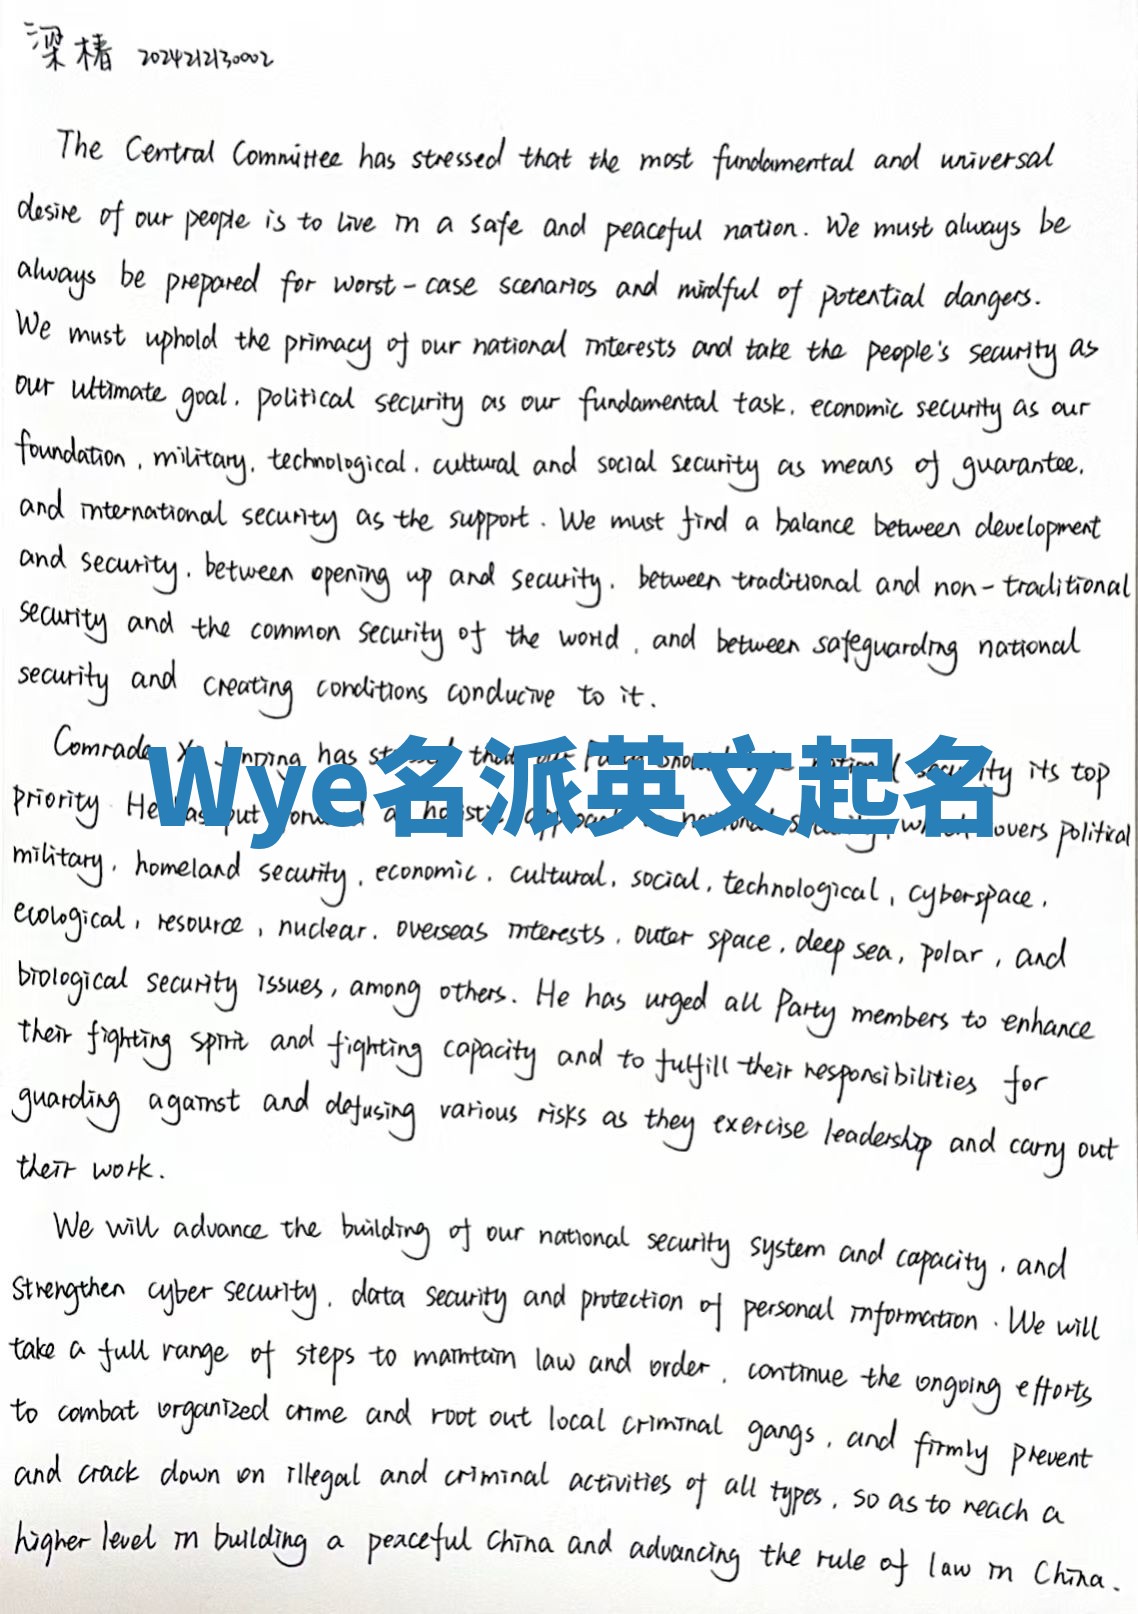 梁椿 2024212130002
The Central Committee has stressed that the most fundamental and universal
desire of our people is to live in a safe and peaceful nation. We must always be
always be prepared for worst-case scenarios and mindful of potential dangers.
We must uphold the primacy of our national interests and take the people's security as
our ultimate goal, political security as our fundamental task, economic security as our
foundation, military, technological, cultural and social security as means of guarantee,
and international security as the support. We must find a balance between development
and security, between opening up and security, between traditional and non-traditional
security and the common security of the world, and between safeguarding national
security and creating conditions conducive to it.
Comrade Xi Jinping has that our security its top
Wye名派英文起名
priority He has put forward a holistic national security, which covers political
military, homeland security, economic, cultural, social, technological, cyberspace,
ecological, resource, nuclear, overseas interests, outer space, deep sea, polar, and
biological security issues, among others. He has urged all Party members to enhance
their fighting spirit and fighting capacity and to fulfill their responsibilities for
guarding against and defusing various risks as they exercise leadership and carry out
their work.
We will advance the building of our national security system and capacity, and
strengthen cyber security, data security and protection of personal information. We will
take a full range of steps to maintain law and order, continue the ongoing efforts
to combat organized crime and root out local criminal gangs, and firmly prevent
and crack down on illegal and criminal activities of all types, so as to reach a
higher level in building a peaceful China and advancing the rule of law in China.